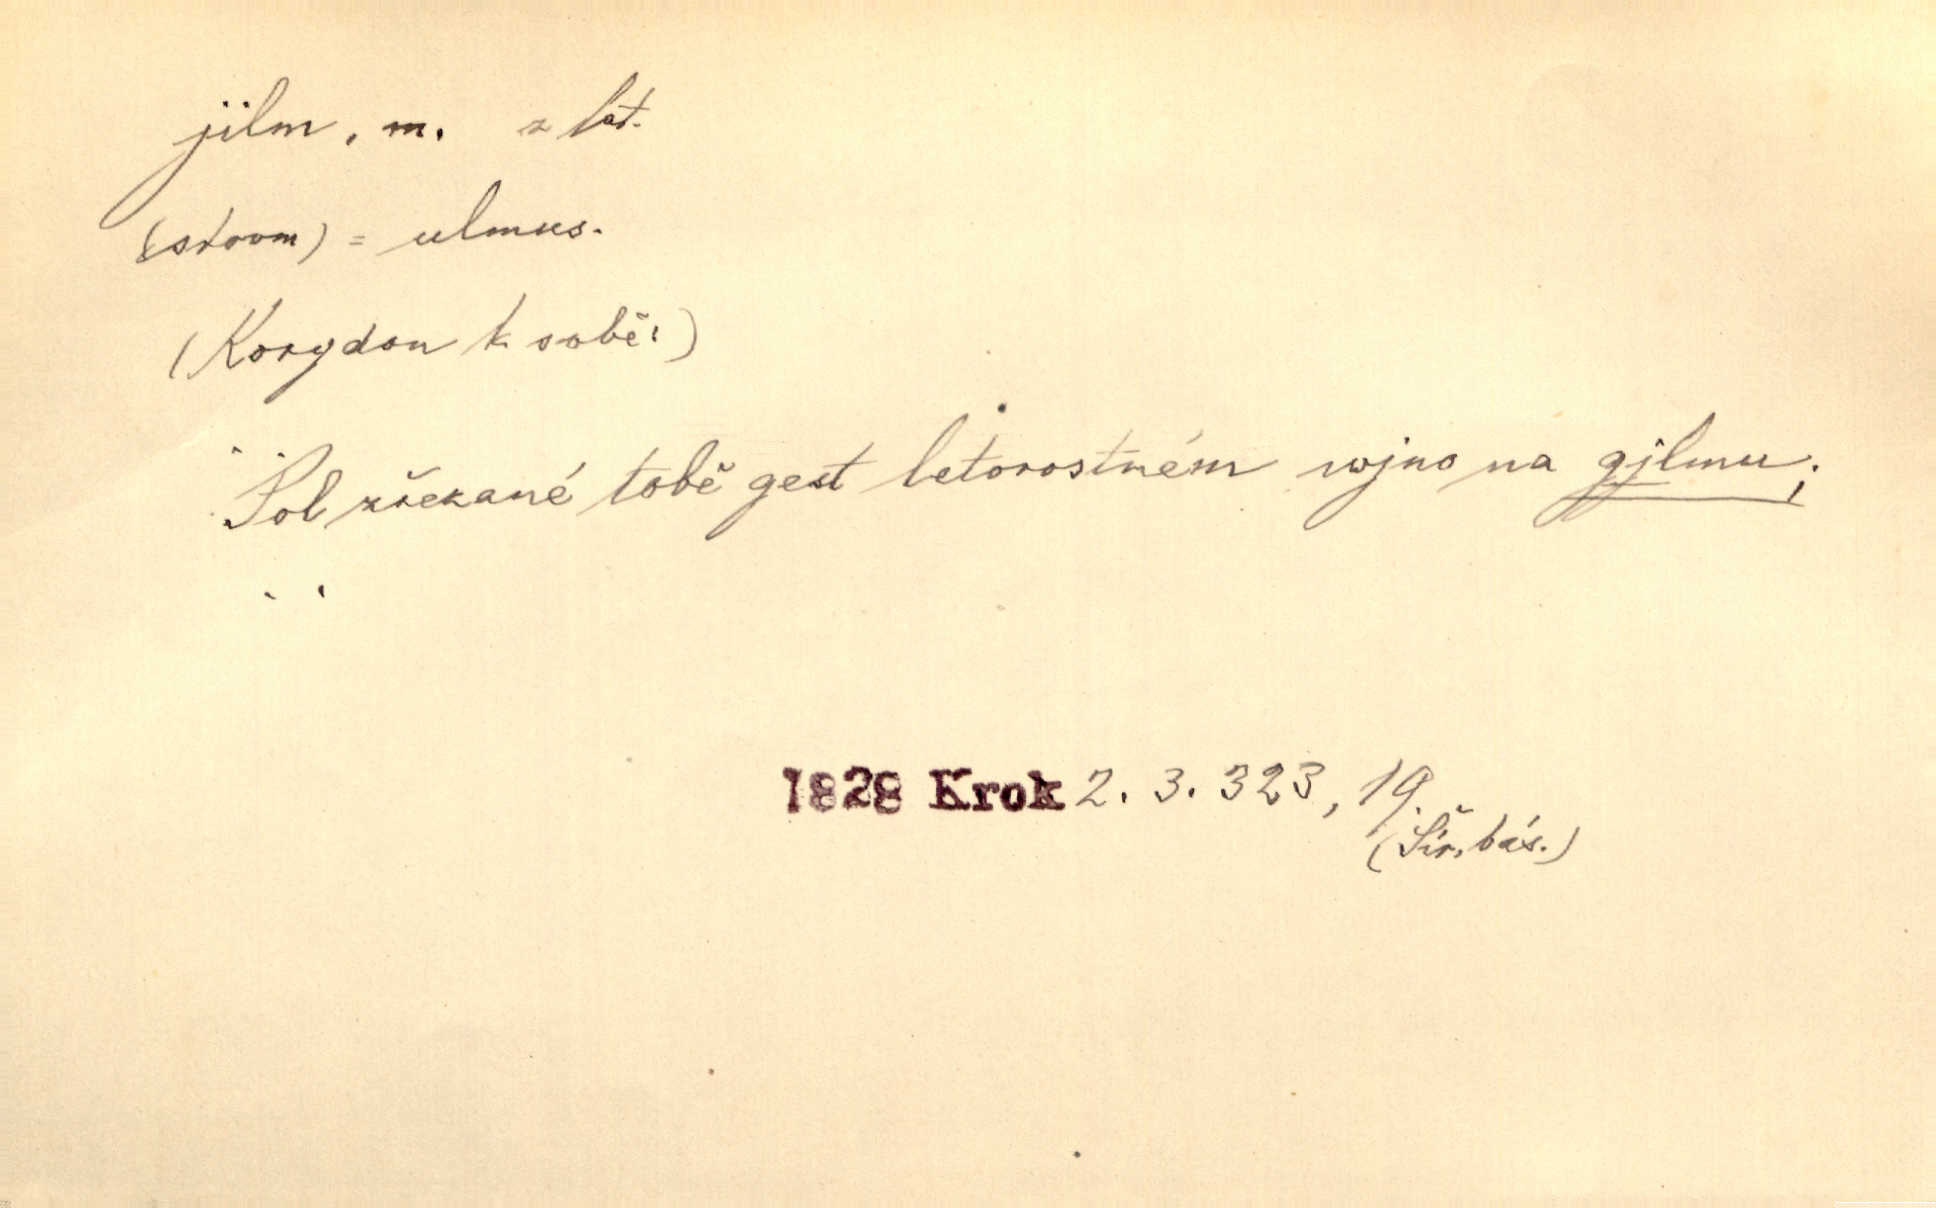 jilm, m. z lat.
(strom) = ulmus.
(Korydon k sobě:)
Pol zřezané tobě gest letorostném wjno na gjlmu;
1828 Krok 2. 3. 323, 19.
(Šír, bás.)